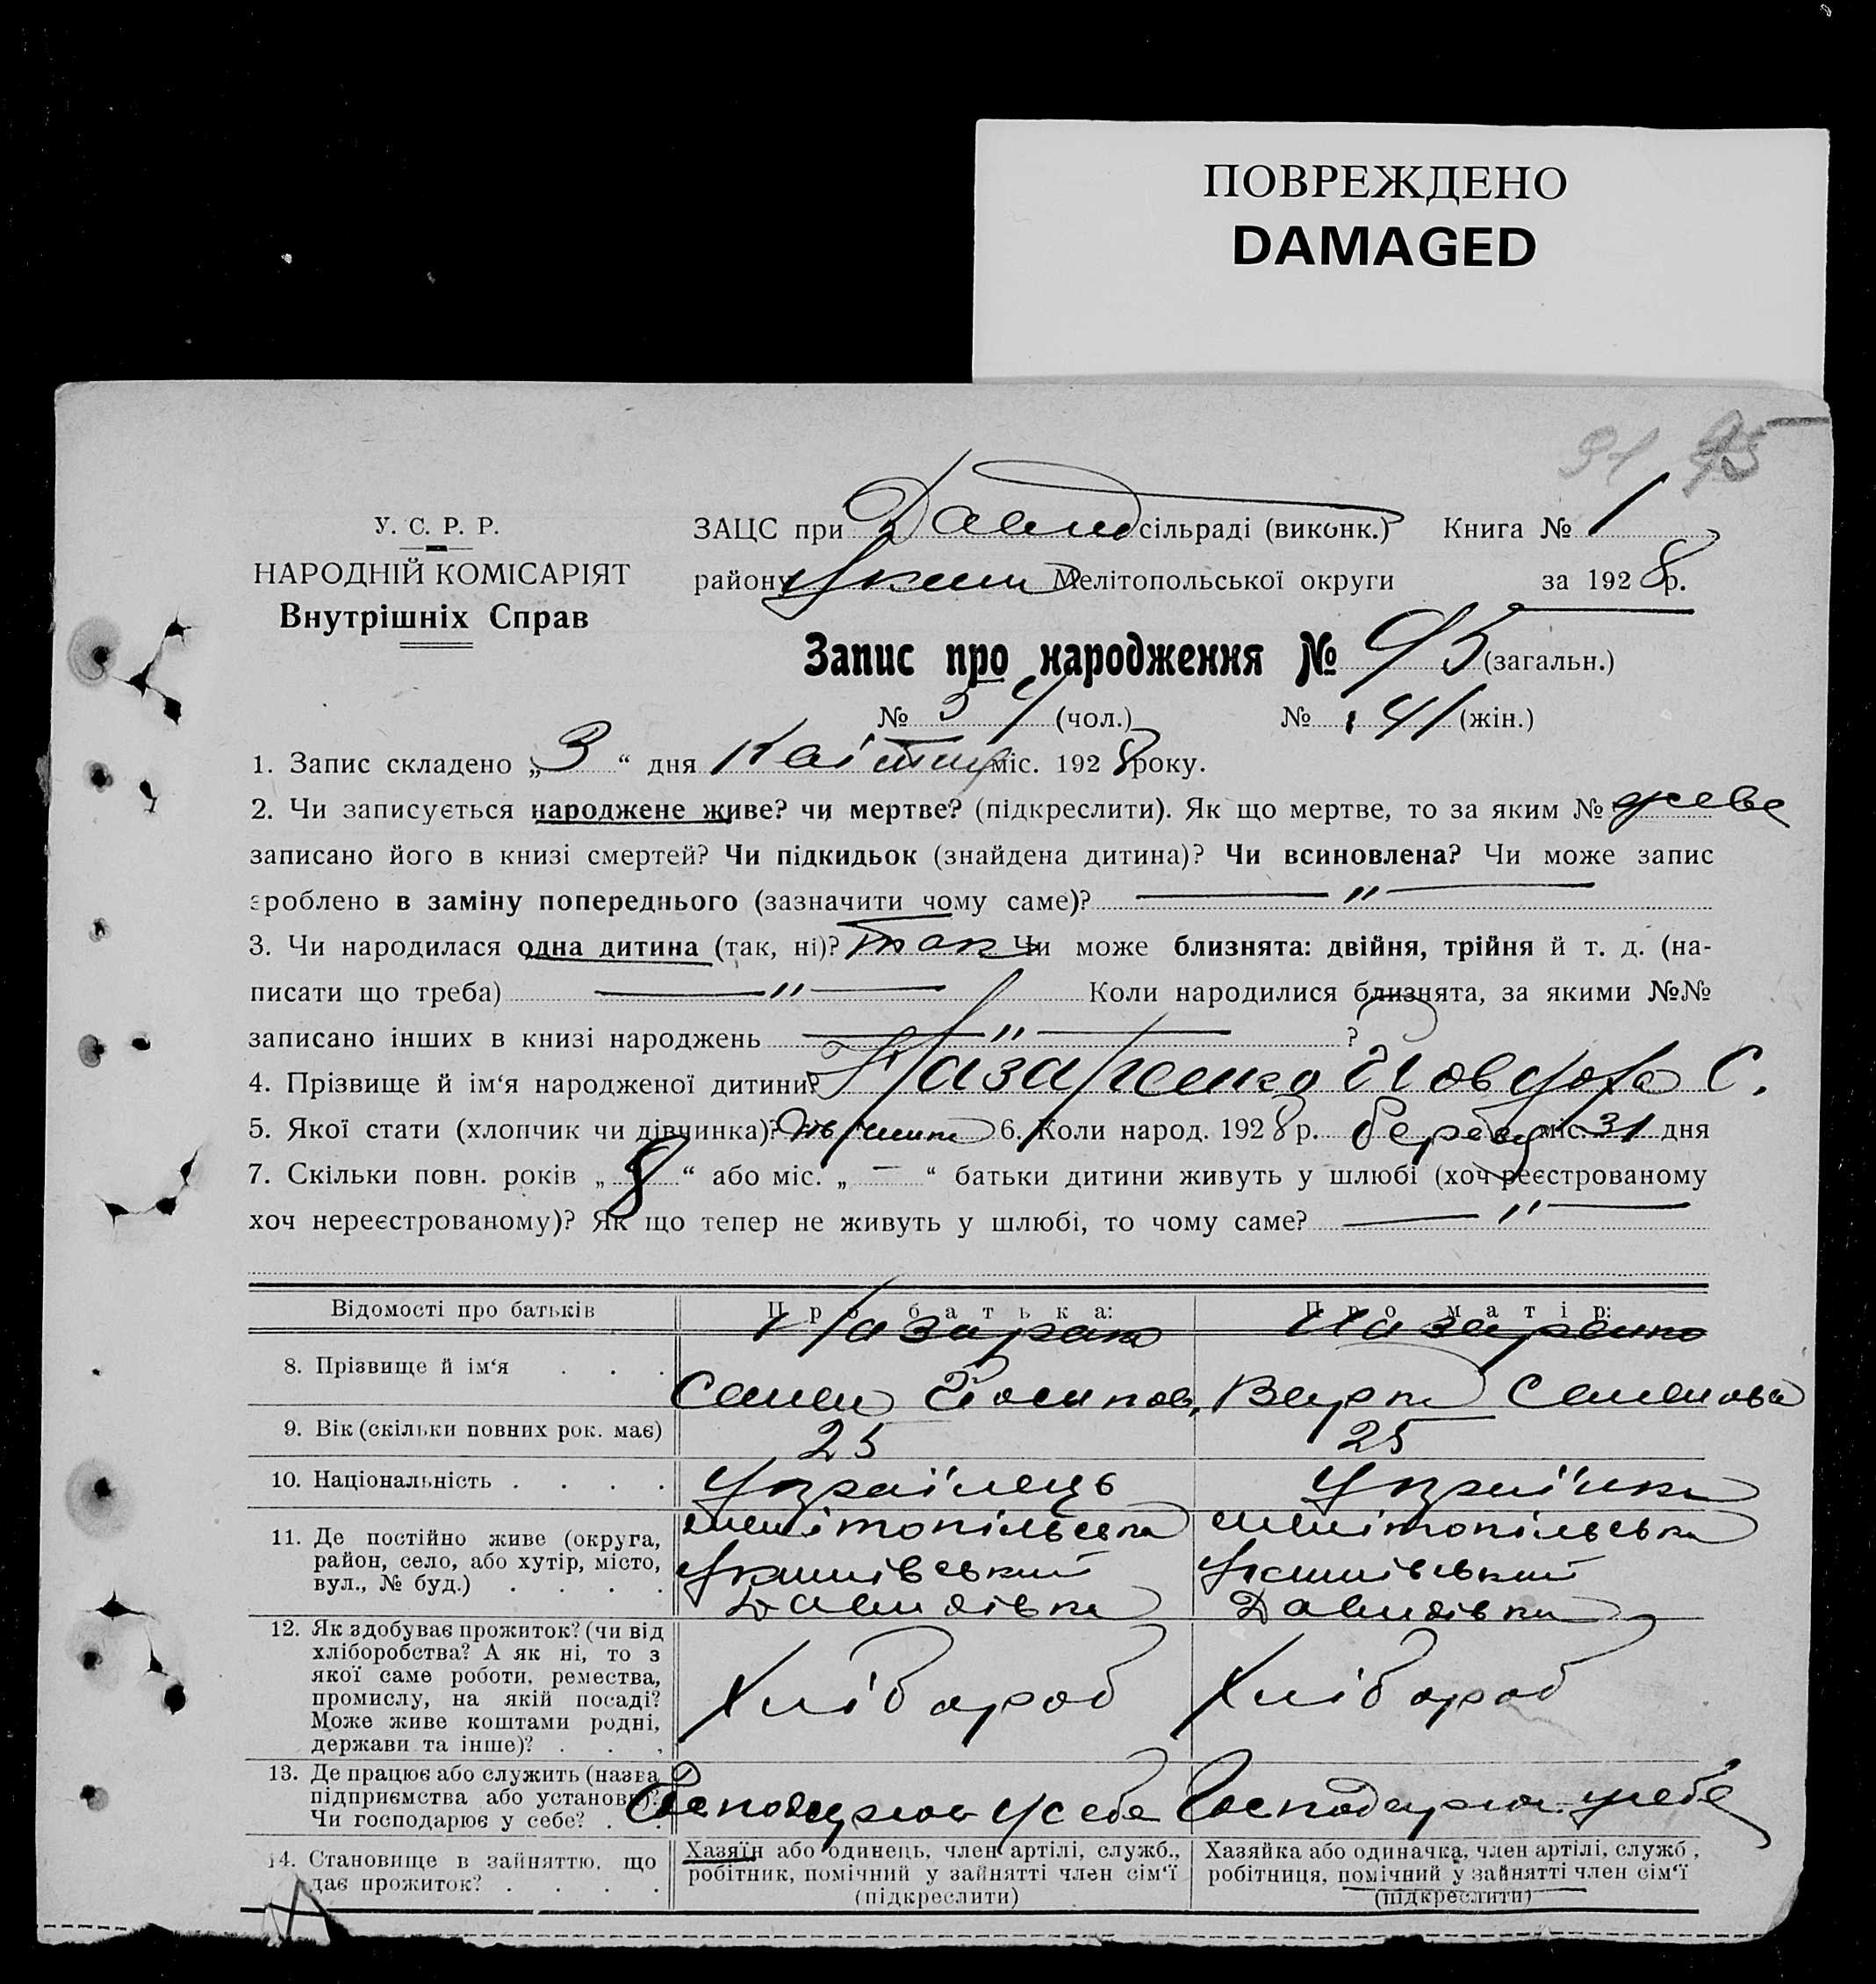 ПОВРЕЖДЕНО
DAMAGED
91 95
У. С. Р. Р.
НАРОДНІЙ КОМІСАРІЯТ
Внутрішніх Справ
ЗАЦС при Давид сільраді (виконк.) Книга № 1
району Яким Мелітопольської округи за 1928 р.
Запис про народження № 95 (загальн.)
№ 54 (чол.) № 41 (жін.)
1. Запис складено „3“ дня Квітня міс. 1928 року.
2. Чи записується народжене живе? чи мертве? (підкреслити). Як що мертве, то за яким № живе
записано його в книзі смертей? Чи підкидьок (знайдена дитина)? Чи всиновлена? Чи може запис
зроблено в заміну попереднього (зазначити чому саме)? — „ —
3. Чи народилася одна дитина (так, ні)? так Чи може близнята: двійня, трійня й т. д. (на-
писати що треба) — „ — Коли народилися близнята, за якими №№
записано інших в книзі народжень — „ — ?
4. Прізвище й ім‘я народженої дитини? Назаренко Йовдоха С.
5. Якої стати (хлопчик чи дівчинка)? дівчинка 6. Коли народ. 1928 р. березня міс. 31 дня
7. Скільки повн. років „8“ або міс. „—“ батьки дитини живуть у шлюбі (хоч реєстрованому
хоч нереєстрованому)? Як що тепер не живуть у шлюбі, то чому саме? — „ —
Відомості про батьків Про батька: Про матір:
8. Прізвище й ім‘я . . . Назаренко Семен Йосипов. Назаренко Варка Семенова
9. Вік (скільки повних рок. має) 25 25
10. Національність . . . . Українець Українка
11. Де постійно живе (округа, район, село, або хутір, місто, вул., № буд.) . . . .
мелітопільська мелітопільська
Якимівський Якимівський
Давидівка Давидівка
12. Як здобуває прожиток? (чи від
хліборобства? А як ні, то з
якої саме роботи, ремества,
промислу, на якій посаді?
Може живе коштами родні,
держави та інше)? . . .
Хлібороб Хлібороб
13. Де працює або служить (назва
підприємства або установи)?
Чи господарює у себе? . .
Господарює у себе Господарює у себе
14. Становище в зайняттю, що
дає прожиток? . . . .
Хазяїн або одинець, член артілі, служб.,
робітник, помічний у зайнятті член сім‘ї
(підкреслити)
Хазяйка або одиначка, член артілі, служб.,
робітниця, помічний у зайнятті член сім‘ї
(підкреслити)